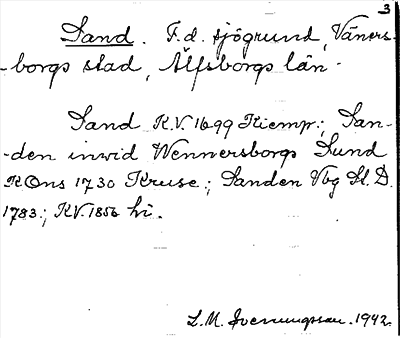 3
Sand. F.d. sjögrund, Väners-
-borgs stad, Älfsborgs län.
Sand K.V. 1699 Kiempr.; San-
-den inwid Wennersborgs Sund
KOns 1730 Kruse.; Sanden Vbg Sl. D.
1783.; KV. 1856 hi.
L.M. Svenungsson. 1942.